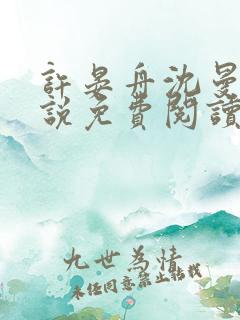 許晏舟沈曼
說免費閱讀
九世為情
未經同意禁止轉載